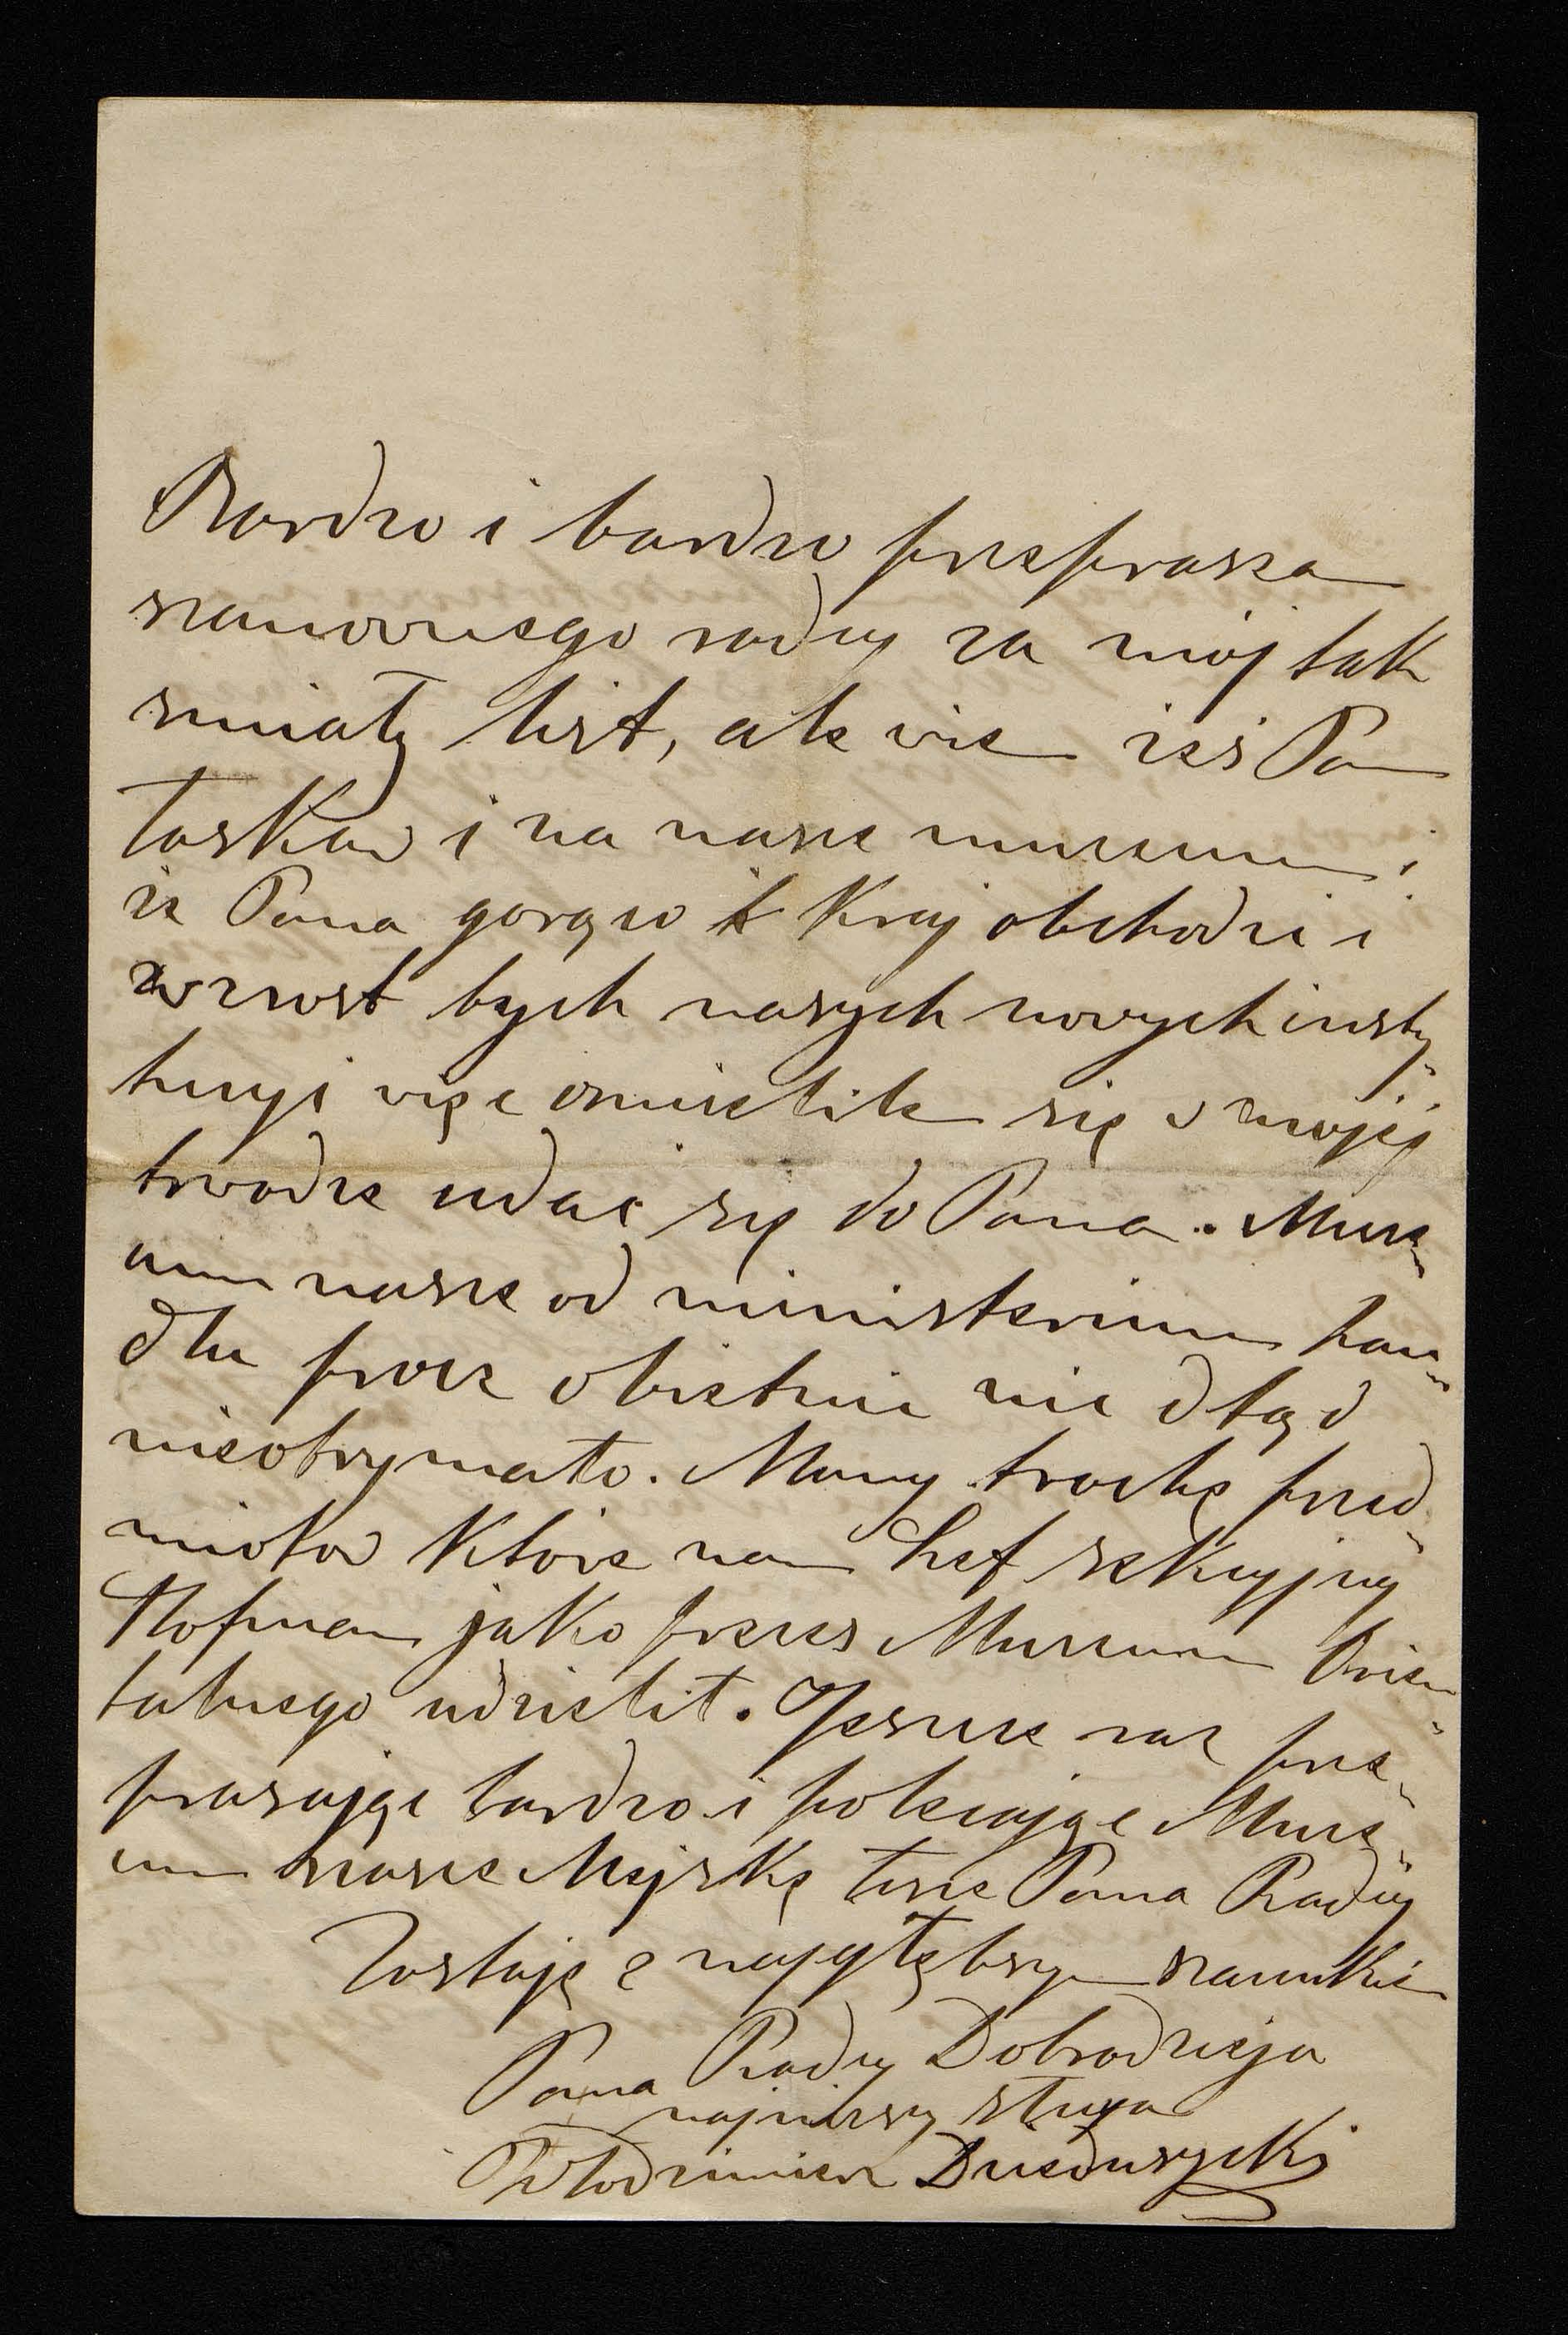 Bardzo i bardzo przepraszam
szanownego radcy za mój tak
smiały list, ale wiem iześ Pan
łaskaw i na nasze museum i
iz Pana gorąco kraj obchodzi i
wzrost tych naszych nowych insty-
tucyi więc ośmieliłem się w mojej
trwodze udać się do Pana. Muze-
um nasze od ministerium han-
dlu procz obietnic nic dtąd
nieotrzymało. Mamy trochę przed-
miotow ktore nam Szef sekcyjny
Hofman jako prezes Muzeum Orien-
talnego udzielił. Jeszcze raz prze-
praszając bardzo i polecając Muze-
um nasze Miejskę łasce Pana Radcy
Zostaję z najgłębszym szacunkiem
Pana Radcy Dobrodzieja
najniższy sługa
Włodzimierz Dzieduszycki